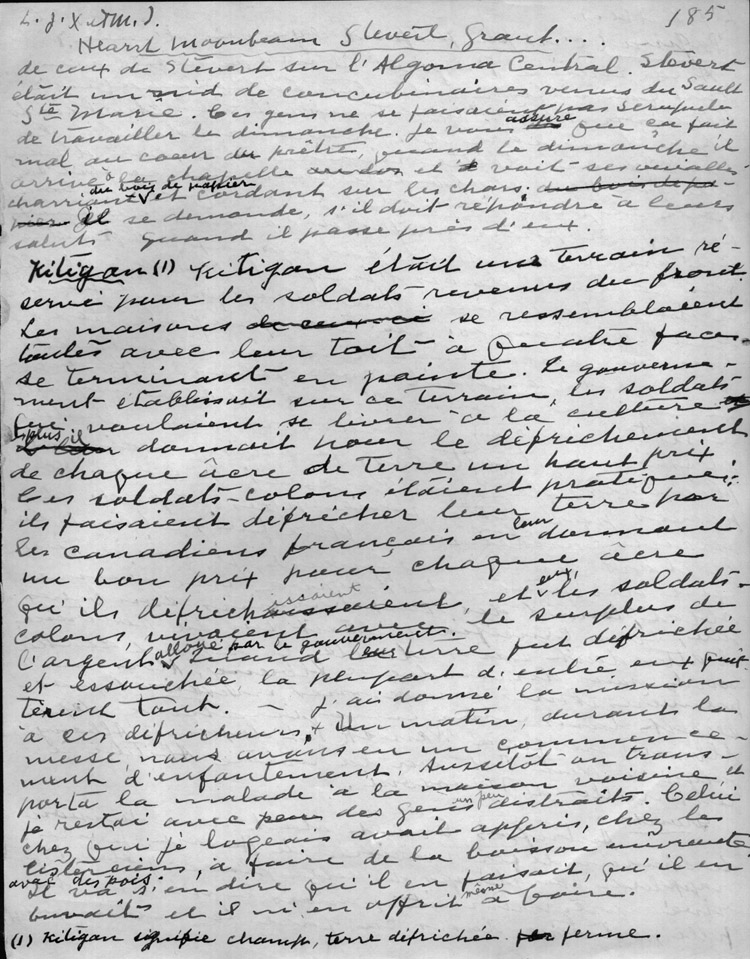 L. J. X et M. J.
185
Hearst Moonbeam Stevert, Grant....
de ceux de Stévert sur l'Algoma Central. Stévert
était un nid de concubinaires venus du Sault
Ste Marie. Ces gens ne se faisaient pas scrupule
de travailler le dimanche. Je vous assure que ça fait
mal au coeur du prêtre, quand le dimanche il
arrive à la chapelle et voit ses ouailles
charriant du bois de papier et cordant sur les chars. du bois de pa-
pier Il se demande, s'il doit répondre à leurs
saluts quand il passe près d'eux.
Kitigan (1) Kitigan était un terrain ré-
servé pour les soldats revenus du front.
Les maisons de ceux-ci se ressemblaient
toutes avec leur toit à quatre faces
se terminant en pointe. Le gouverne-
ment établissait sur ce terrain, les soldats
qui voulaient se livrer à la culture
de plus il donnait pour le défrichement
de chaque âcre de terre un haut prix
Ces soldats-colons étaient pratiques:
ils faisaient défricher leur terre par
les canadiens français en leur donnant
un bon prix pour chaque âcre
qu'ils défrichaissaient, et eux, les soldats-
colons, vivaient avec le surplus de
l'argent alloué par le gouvernement. Quand leur terre fut défrichée
et essouchée la plupart d'entre eux quit-
tèrent tout. — J'ai donné la mission
à ces défricheurs. Un matin, durant la
messe, nous avons eu un commence-
ment d'enfantement. Aussitôt on trans-
porta la malade à la maison voisine et
je restai avec des gens un peu distraits. Celui
chez qui je logeais avait appris, chez les
Cisterciens, à faire de la boisson enivrante
avec des pois. Il va s'en dire qu'il en faisait, qu'il en
buvait et il m'en offrit même à boire.
(1) Kitigan signifie champ, terre défrichée ferme.